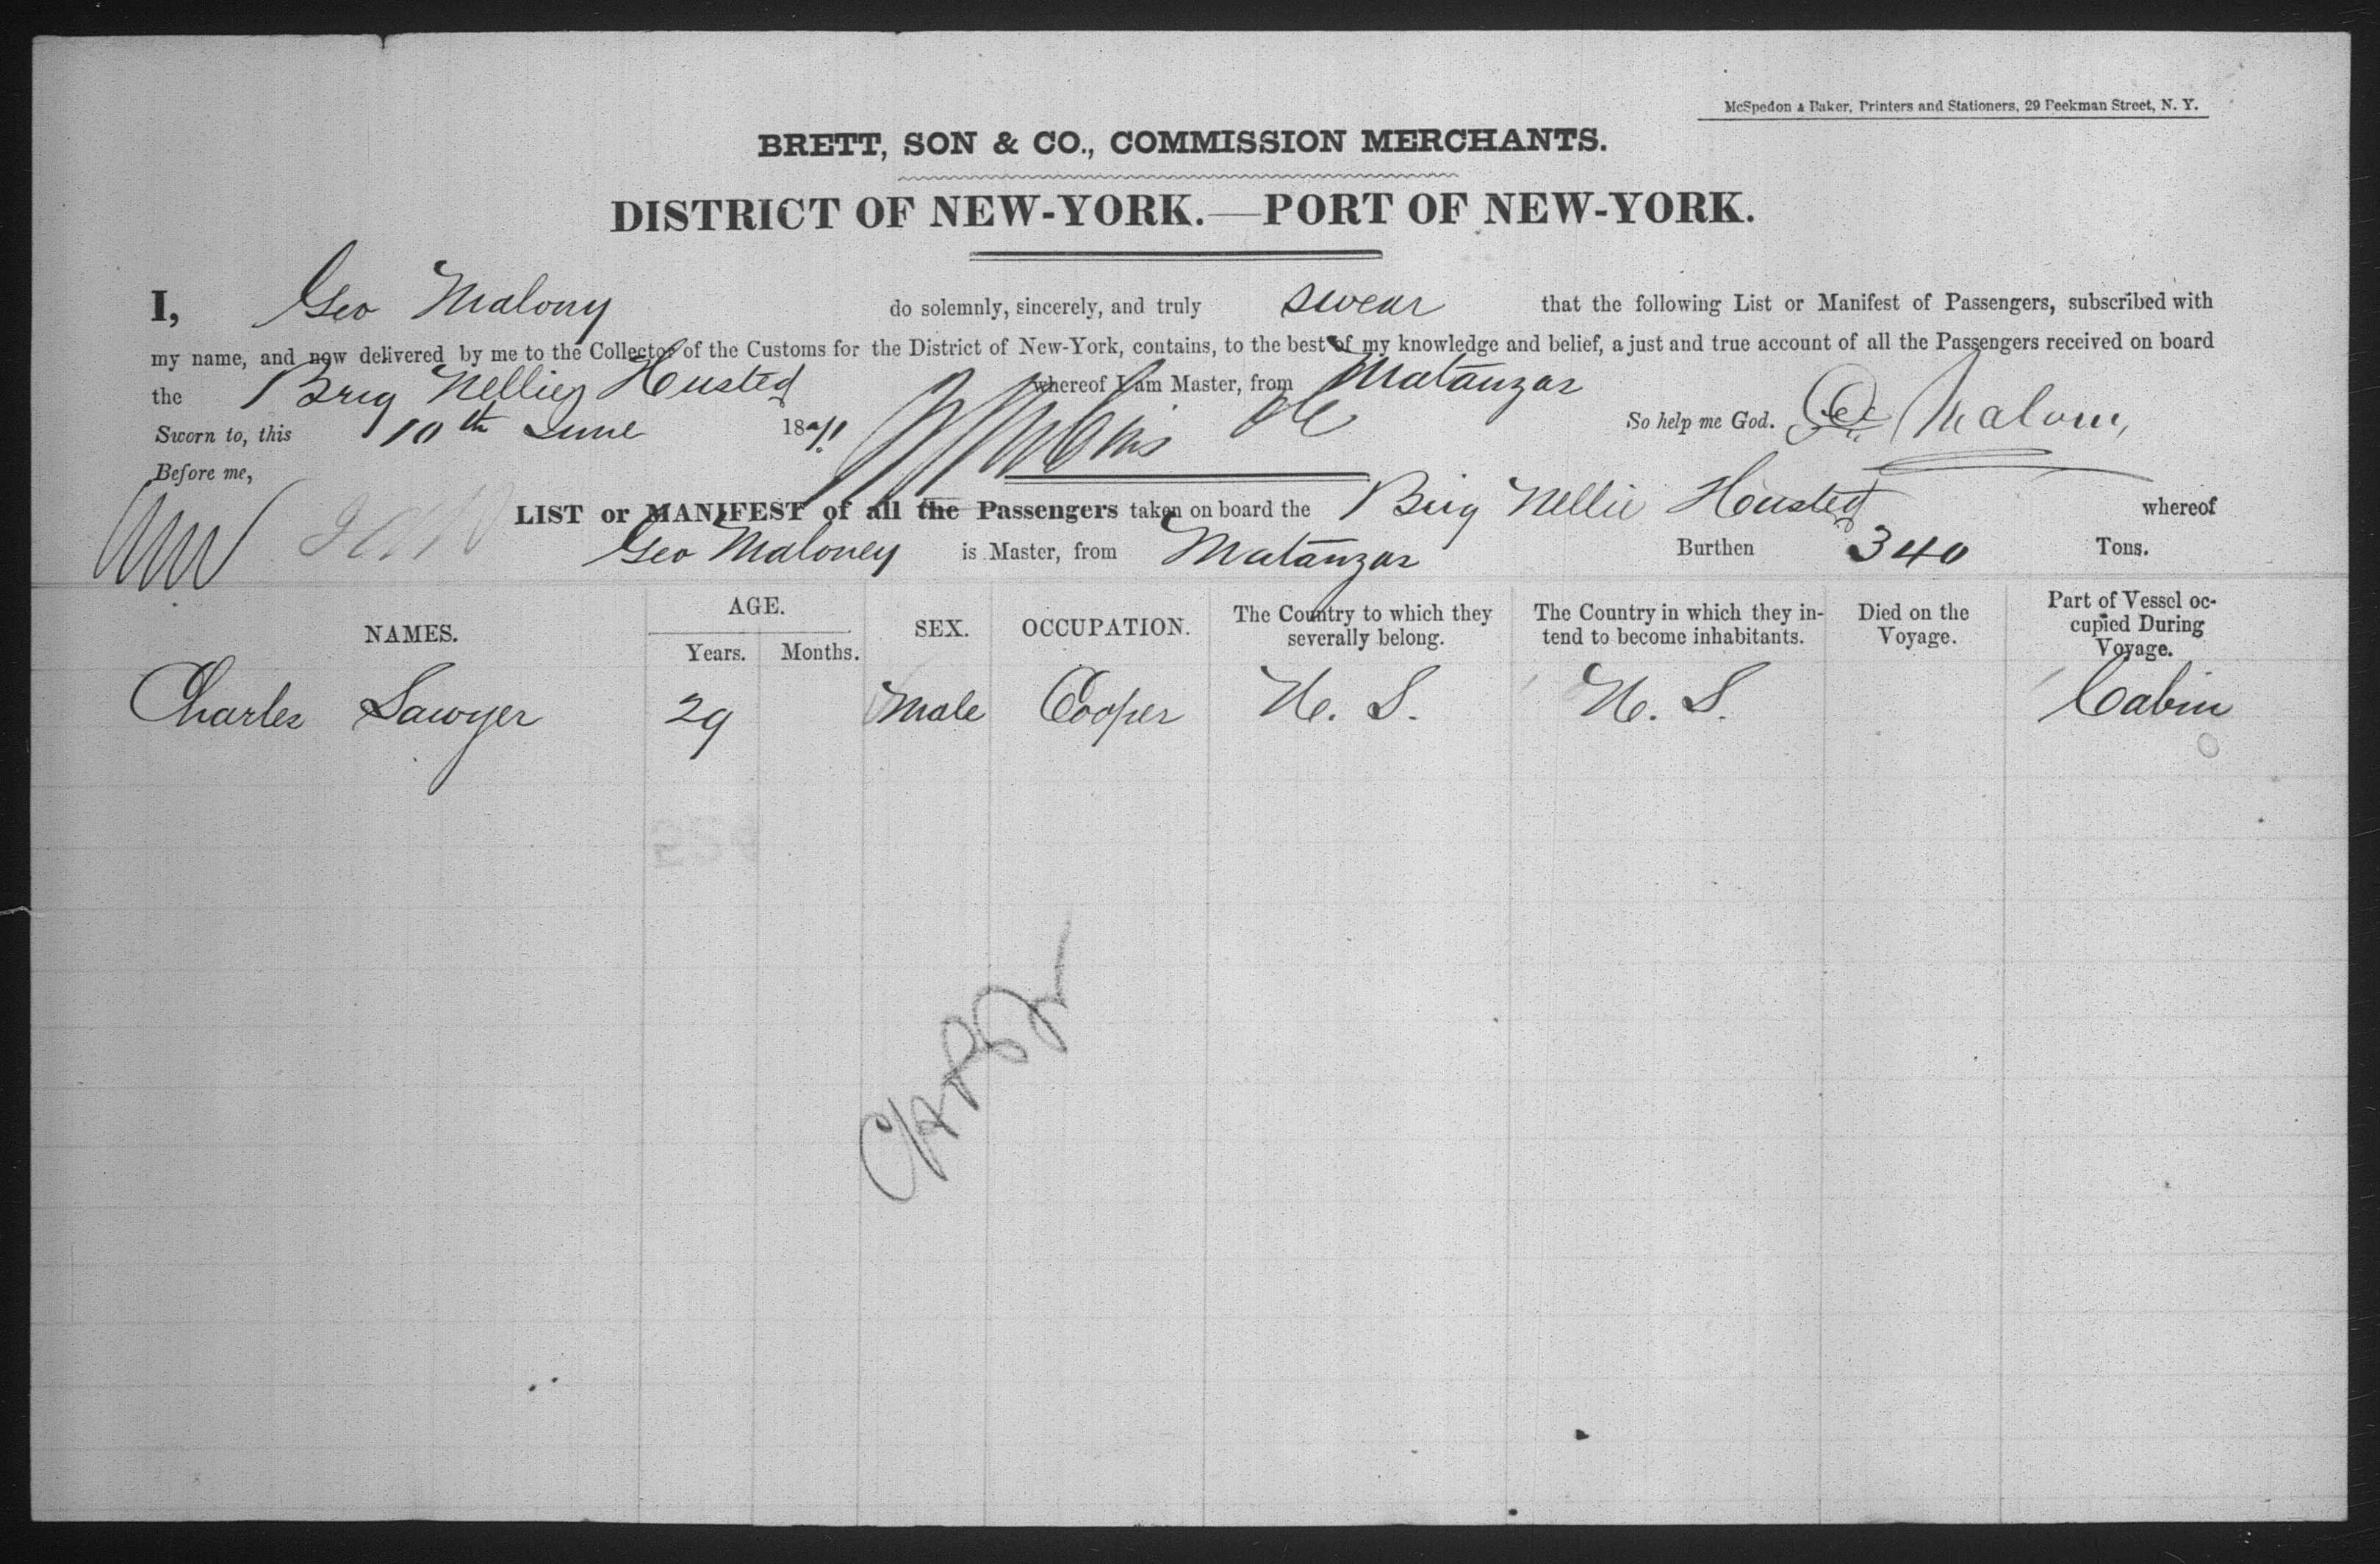 McSpedon & Baker, Printers and Stationers, 29 Beekman Street, N. Y.
BRETT, SON & CO., COMMISSION MERCHANTS.
DISTRICT OF NEW-YORK.—PORT OF NEW-YORK.
I, Geo Malony do solemnly, sincerely, and truly swear that the following List or Manifest of Passengers, subscribed with
my name, and now delivered by me to the Collector of the Customs for the District of New-York, contains, to the best of my knowledge and belief, a just and true account of all the Passengers received on board
the Brig Nellie Husted whereof I am Master, from Matanzas
Sworn to, this 10th June 1871 So help me God. Geo Malony
Before me,
LIST or MANIFEST of all the Passengers taken on board the Brig Nellie Housted whereof
Geo Maloney is Master, from Matanzas Burthen 340 Tons.
NAMES. AGE. Years. Months. SEX. OCCUPATION. The Country to which they severally belong. The Country in which they intend to become inhabitants. Died on the Voyage. Part of Vessel occupied During Voyage.
Charles Sawyer 29 Male Cooper U. S. U. S. Cabin